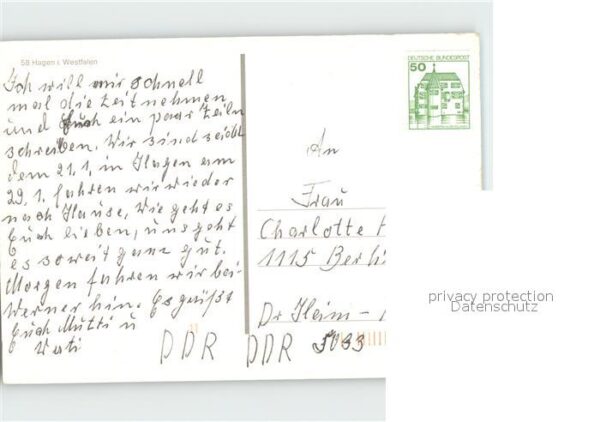 58 Hagen i. Westfalen
Ich will mir schnell
mal die Zeit nehmen
und Euch ein paar Zeiln
schreiben. Wir sind seidt
dem 21.1. in Hagen am
29.1. fahren wir wieder
nach Hause. Wie geht es
Euch lieben, uns geht
es soweit ganz gut.
Morgen fahren wir bei
Werner hin. Es grüßt
Euch Mutti u
Vati
DEUTSCHE BUNDESPOST
50
An
Frau
Charlotte H
1115 Berlin
Dr Heim-
DDR DDR 5033
privacy protection
Datenschutz